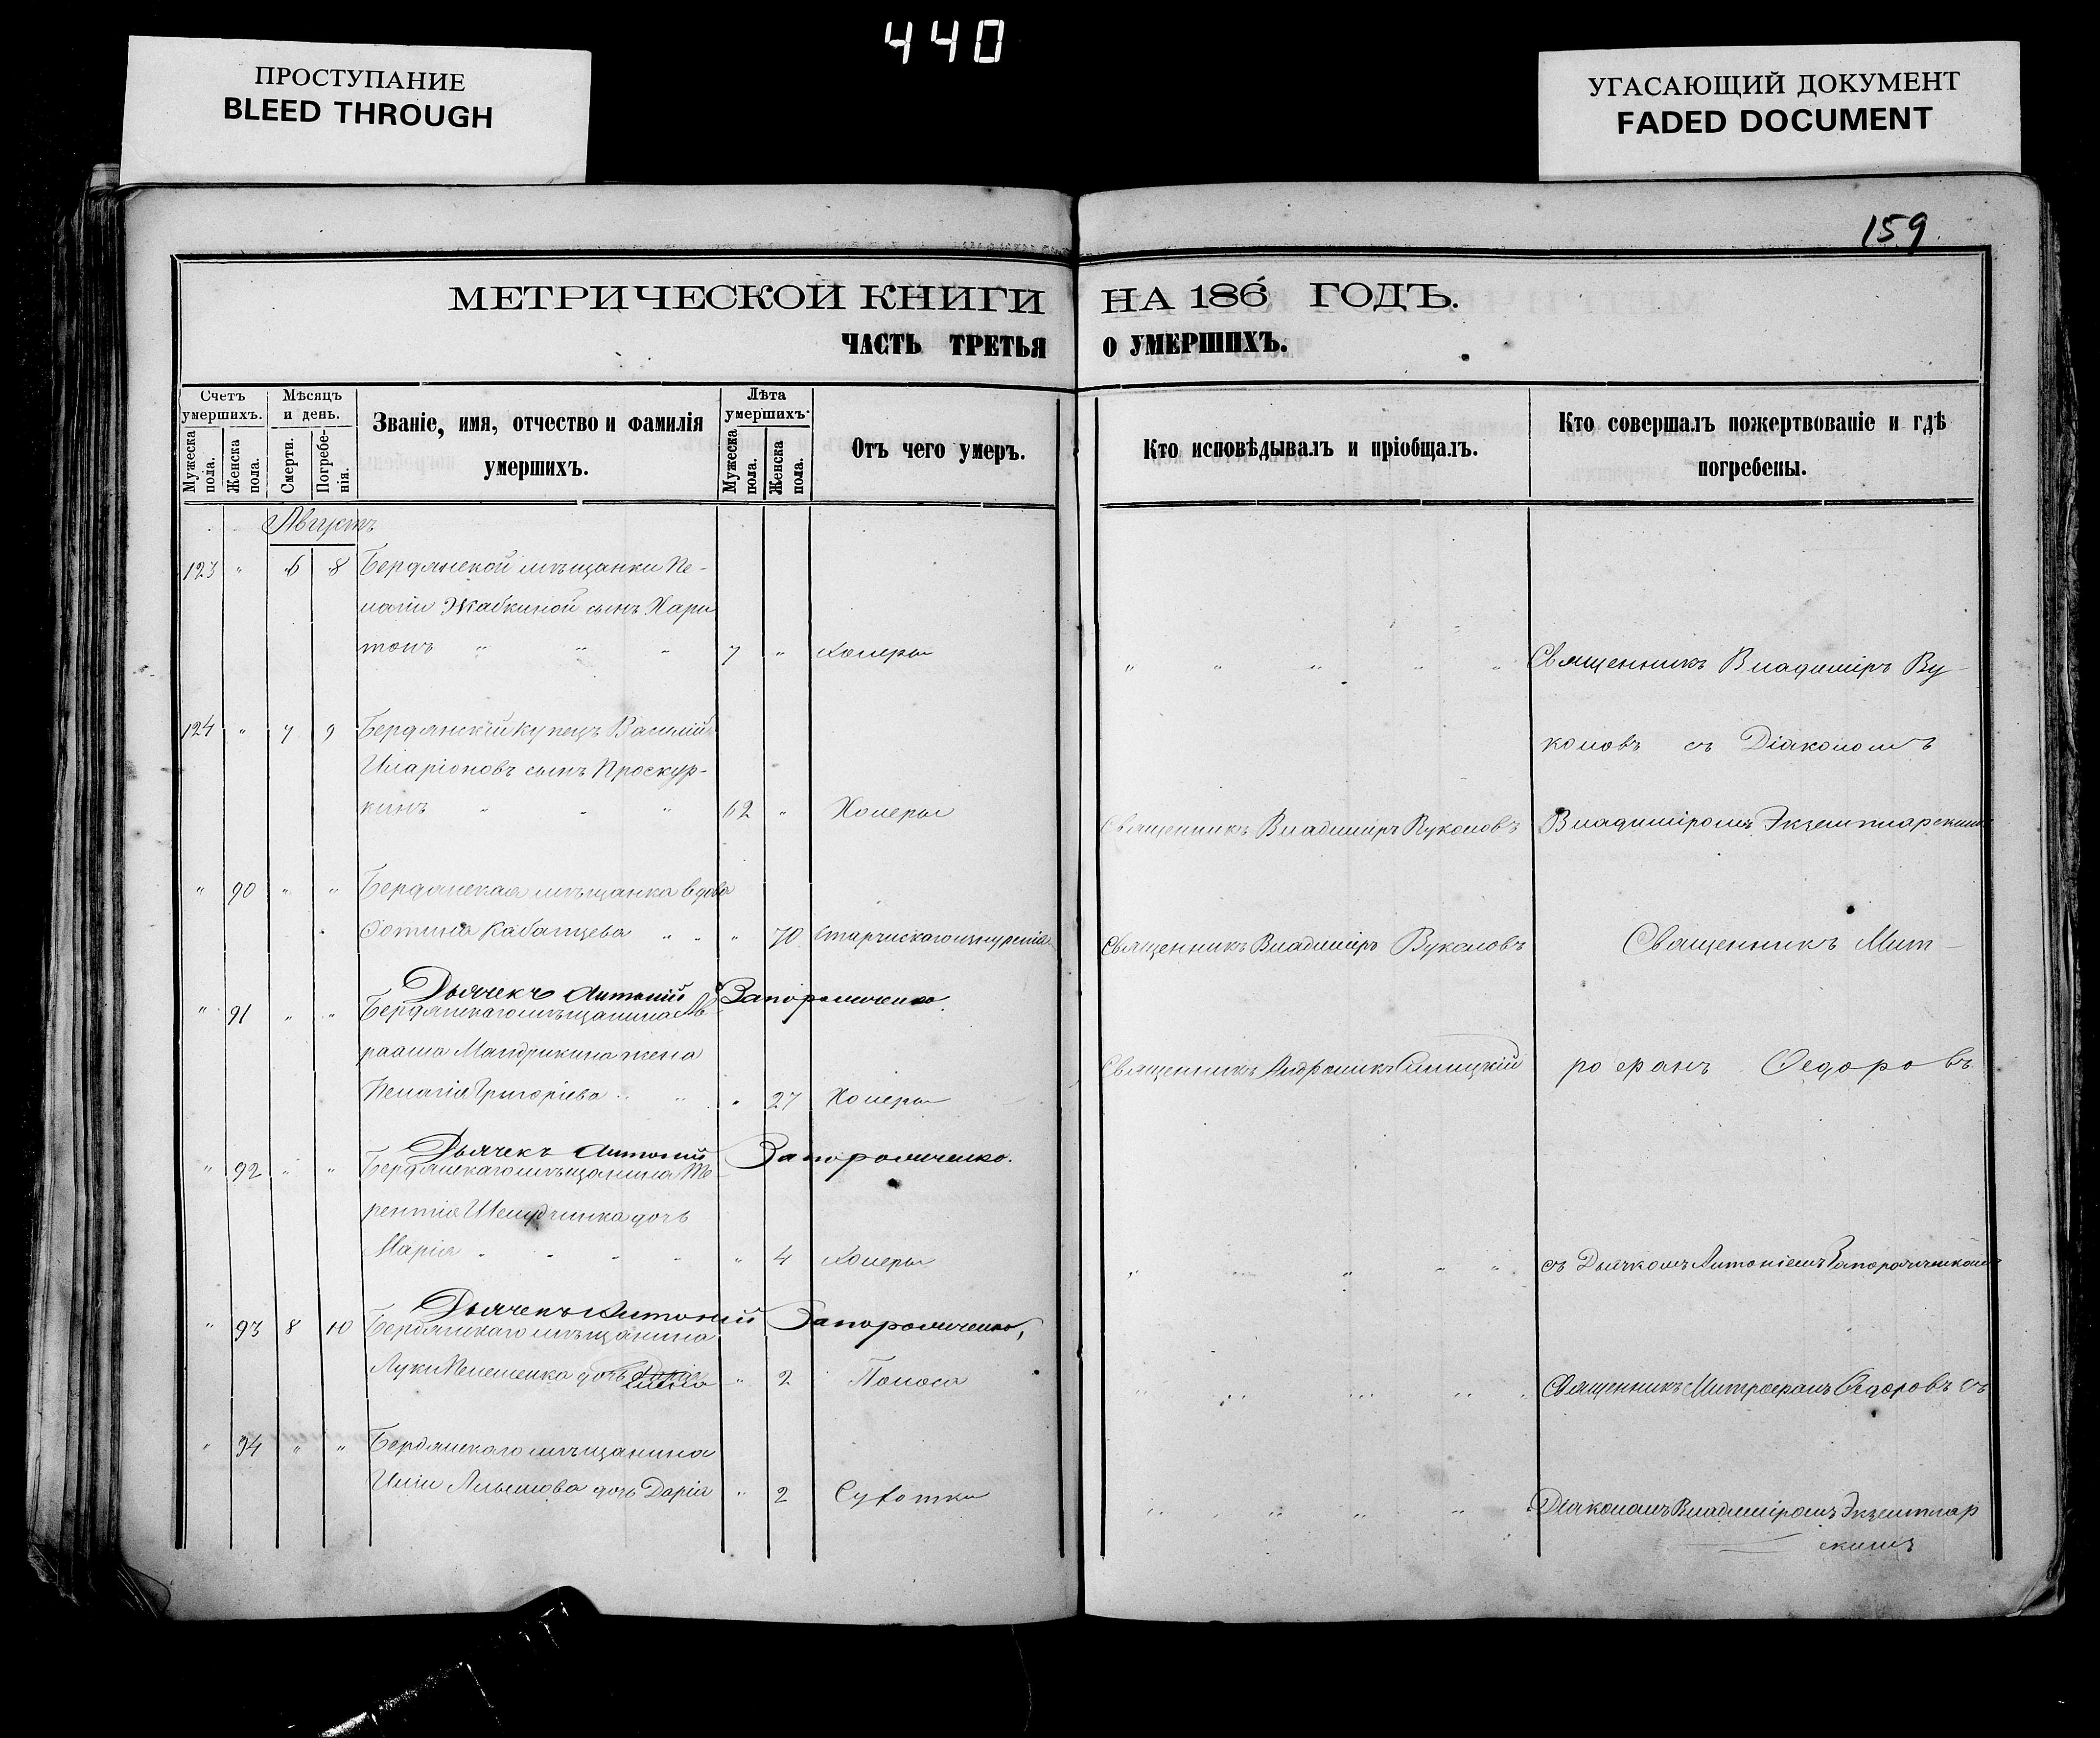 440
ПРОСТУПАНИЕ
BLEED THROUGH
УГАСАЮЩИЙ ДОКУМЕНТ
FADED DOCUMENT
159
МЕТРИЧЕСКОЙ КНИГИ НА 186 ГОДЪ.
ЧАСТЬ ТРЕТЬЯ О УМЕРШИХЪ.
Счетъ умершихъ.
Мужеска пола.
Женска пола.
Мѣсяцъ и день.
Смерти.
Погребенія.
Званіе, имя, отчество и фамилія
умершихъ.
Лѣта умершихъ.
Мужеска пола.
Женска пола.
Отъ чего умеръ.
Кто исповѣдывалъ и пріобщалъ.
Кто совершалъ пожертвованіе и гдѣ
погребены.
Августъ
123 " 6 8 Бердянской мѣщанки Пе-
лагіи Жабкиной сынъ Хари
тонъ " " " 7 " Холеры " " " " " Священникъ Владиміръ Ву
124 " 7 9 Бердянскій купецъ Василій
коловъ съ Діакономъ
Иларіоновъ сынъ Проскур-
кинъ " " " 62 " Холеры Священникъ Владиміръ Вуколовъ Владиміромъ Экземплярскимъ
" 90 " " Бердянская мѣщанка вдова
Фотина Кабанцева " " " 70 Старческаго изнуренія Священникъ Владиміръ Вуколовъ Священникъ Мит-
Дьячекъ Антоній Запорожченко
" 91 " " Бердянскаго мѣщанина Ав
раама Мандрикина жена Священникъ Андроникъ Синицкій рофанъ Ѳедоровъ
Пелагія Григоріева " " " 27 Холеры
Дьячекъ Антоній Запорожченко.
" 92 " " Бердянскаго мѣщанина Те
рентія Шелудченка дочь
Марія " " " " " 4 Холеры " " " " съ Дьячкомъ Антоніемъ Запорожченкомъ
Дьячекъ Антоній Запорожченко,
" 93 8 10 Бердянскаго мѣщанина
Луки Пелешенка дочь " 2 Поноса " " " " " Священникъ Митрофанъ Ѳедоровъ съ
" 94 " " Бердянскаго мѣщанина
Иліи дочь Дарія " 2 Сухотки " " " " Діакономъ Владиміромъ Экземпляр
скимъ